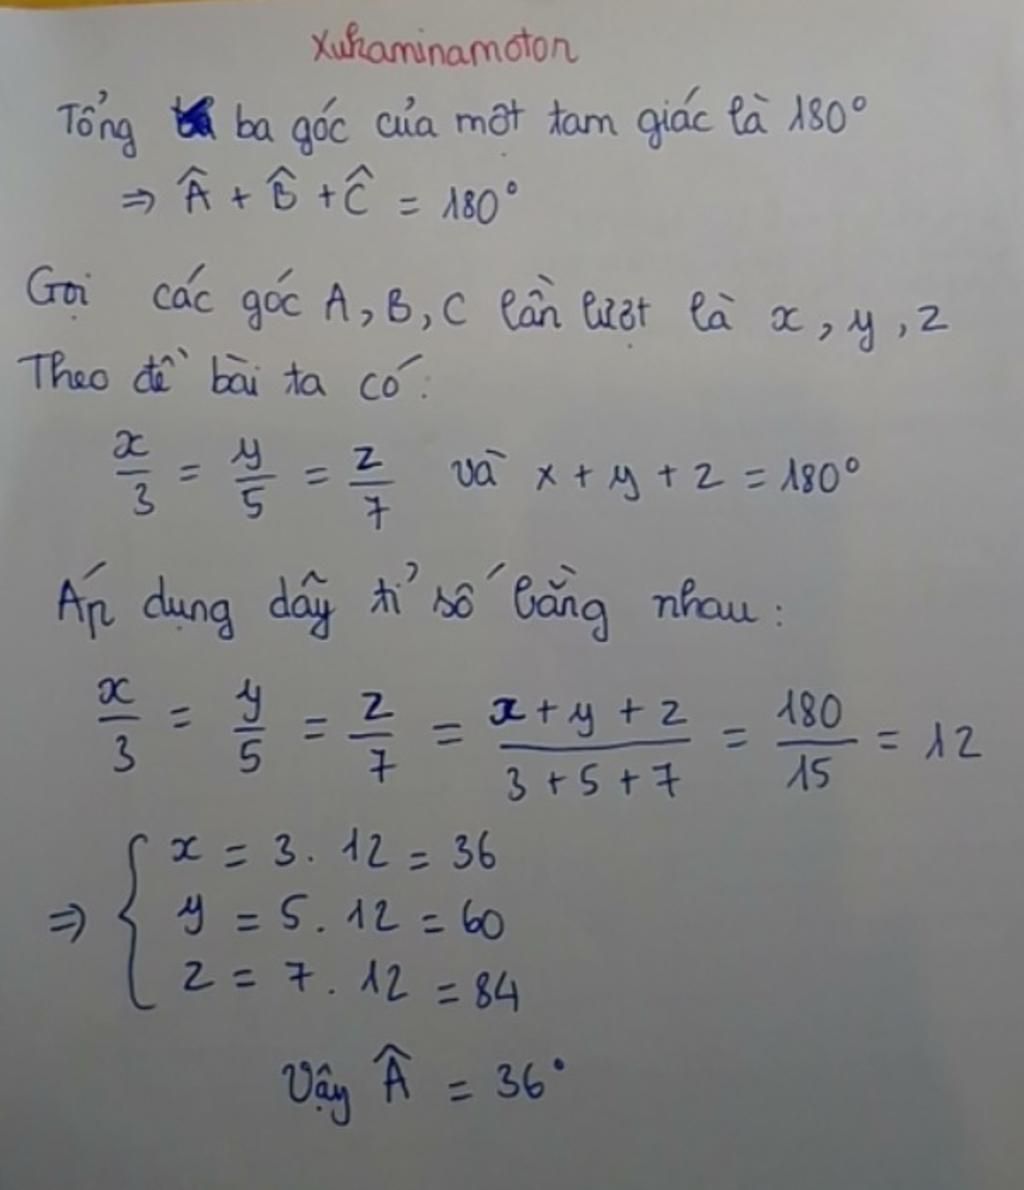 xukaminamoton
Tổng ba góc của một tam giác là 180°
⇒ Â + B̂ + Ĉ = 180°
Gọi các góc A, B, C lần lượt là x, y, z
Theo đề bài ta có:
x/3 = y/5 = z/7 và x + y + z = 180°
Áp dụng dãy tỉ số bằng nhau:
x/3 = y/5 = z/7 = (x + y + z)/(3 + 5 + 7) = 180/15 = 12
⇒ { x = 3 . 12 = 36
y = 5 . 12 = 60
z = 7 . 12 = 84
Vậy Â = 36°